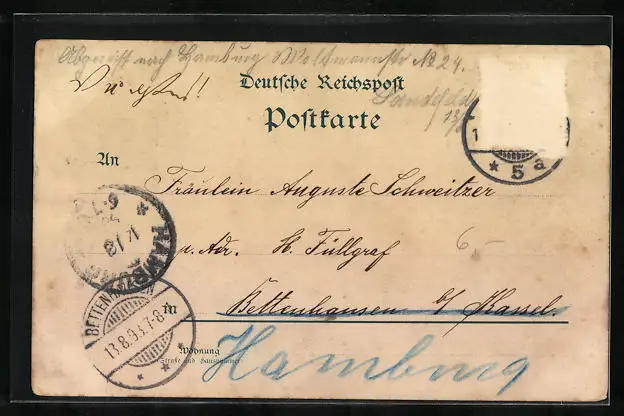 Abgereist nach Hamburg Woltmannstr No 24.
Deutsche Reichspost
Postkarte
An
Fräulein Auguste Schweitzer
u. Adr. H. Füllgraf 6-
in Bettenhausen b/ Kassel.
Wohnung
(Straße und Hausnummer)
Hamburg
HAMBURG
BETTENHAUSEN
13.8.93.7-8
* 5 a